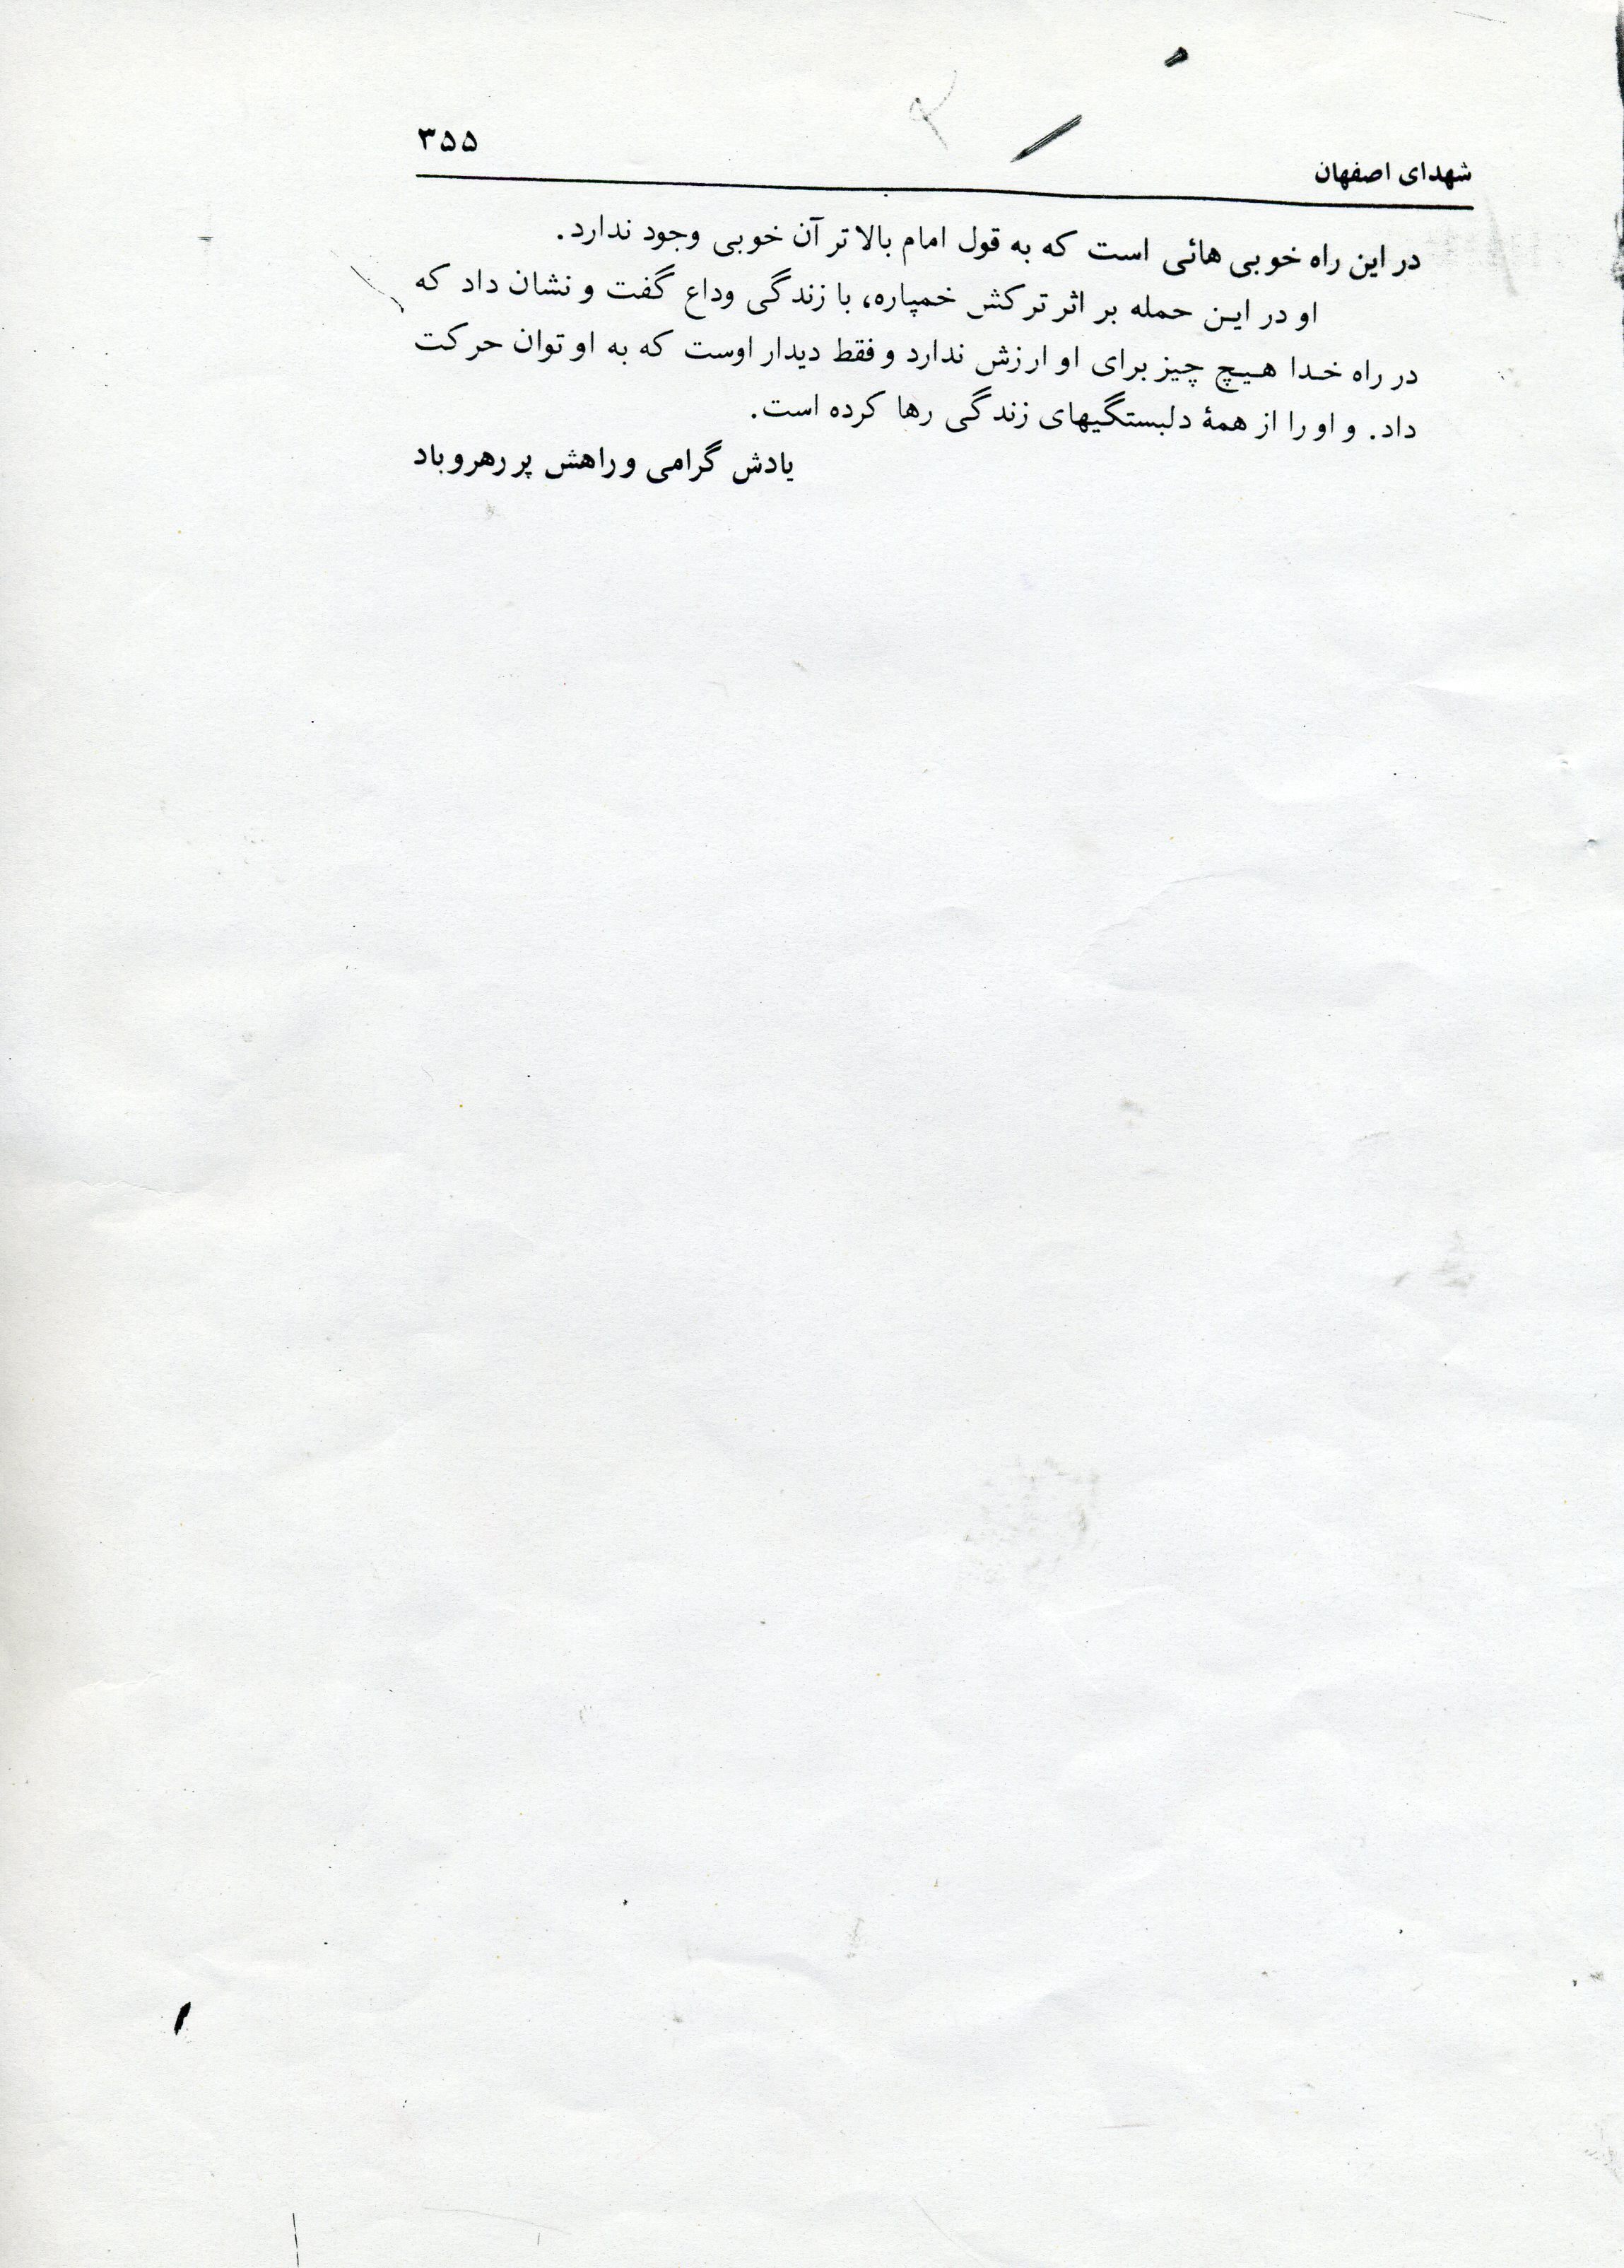 شهدای اصفهان ۳۵۵
در این راه خوبی هائی است که به قول امام بالاتر آن خوبی وجود ندارد.
او در این حمله بر اثر ترکش خمپاره، با زندگی وداع گفت و نشان داد که
در راه خدا هیچ چیز برای او ارزش ندارد و فقط دیدار اوست که به او توان حرکت
داد. و او را از همهٔ دلبستگیهای زندگی رها کرده است.
یادش گرامی و راهش پر رهرو باد